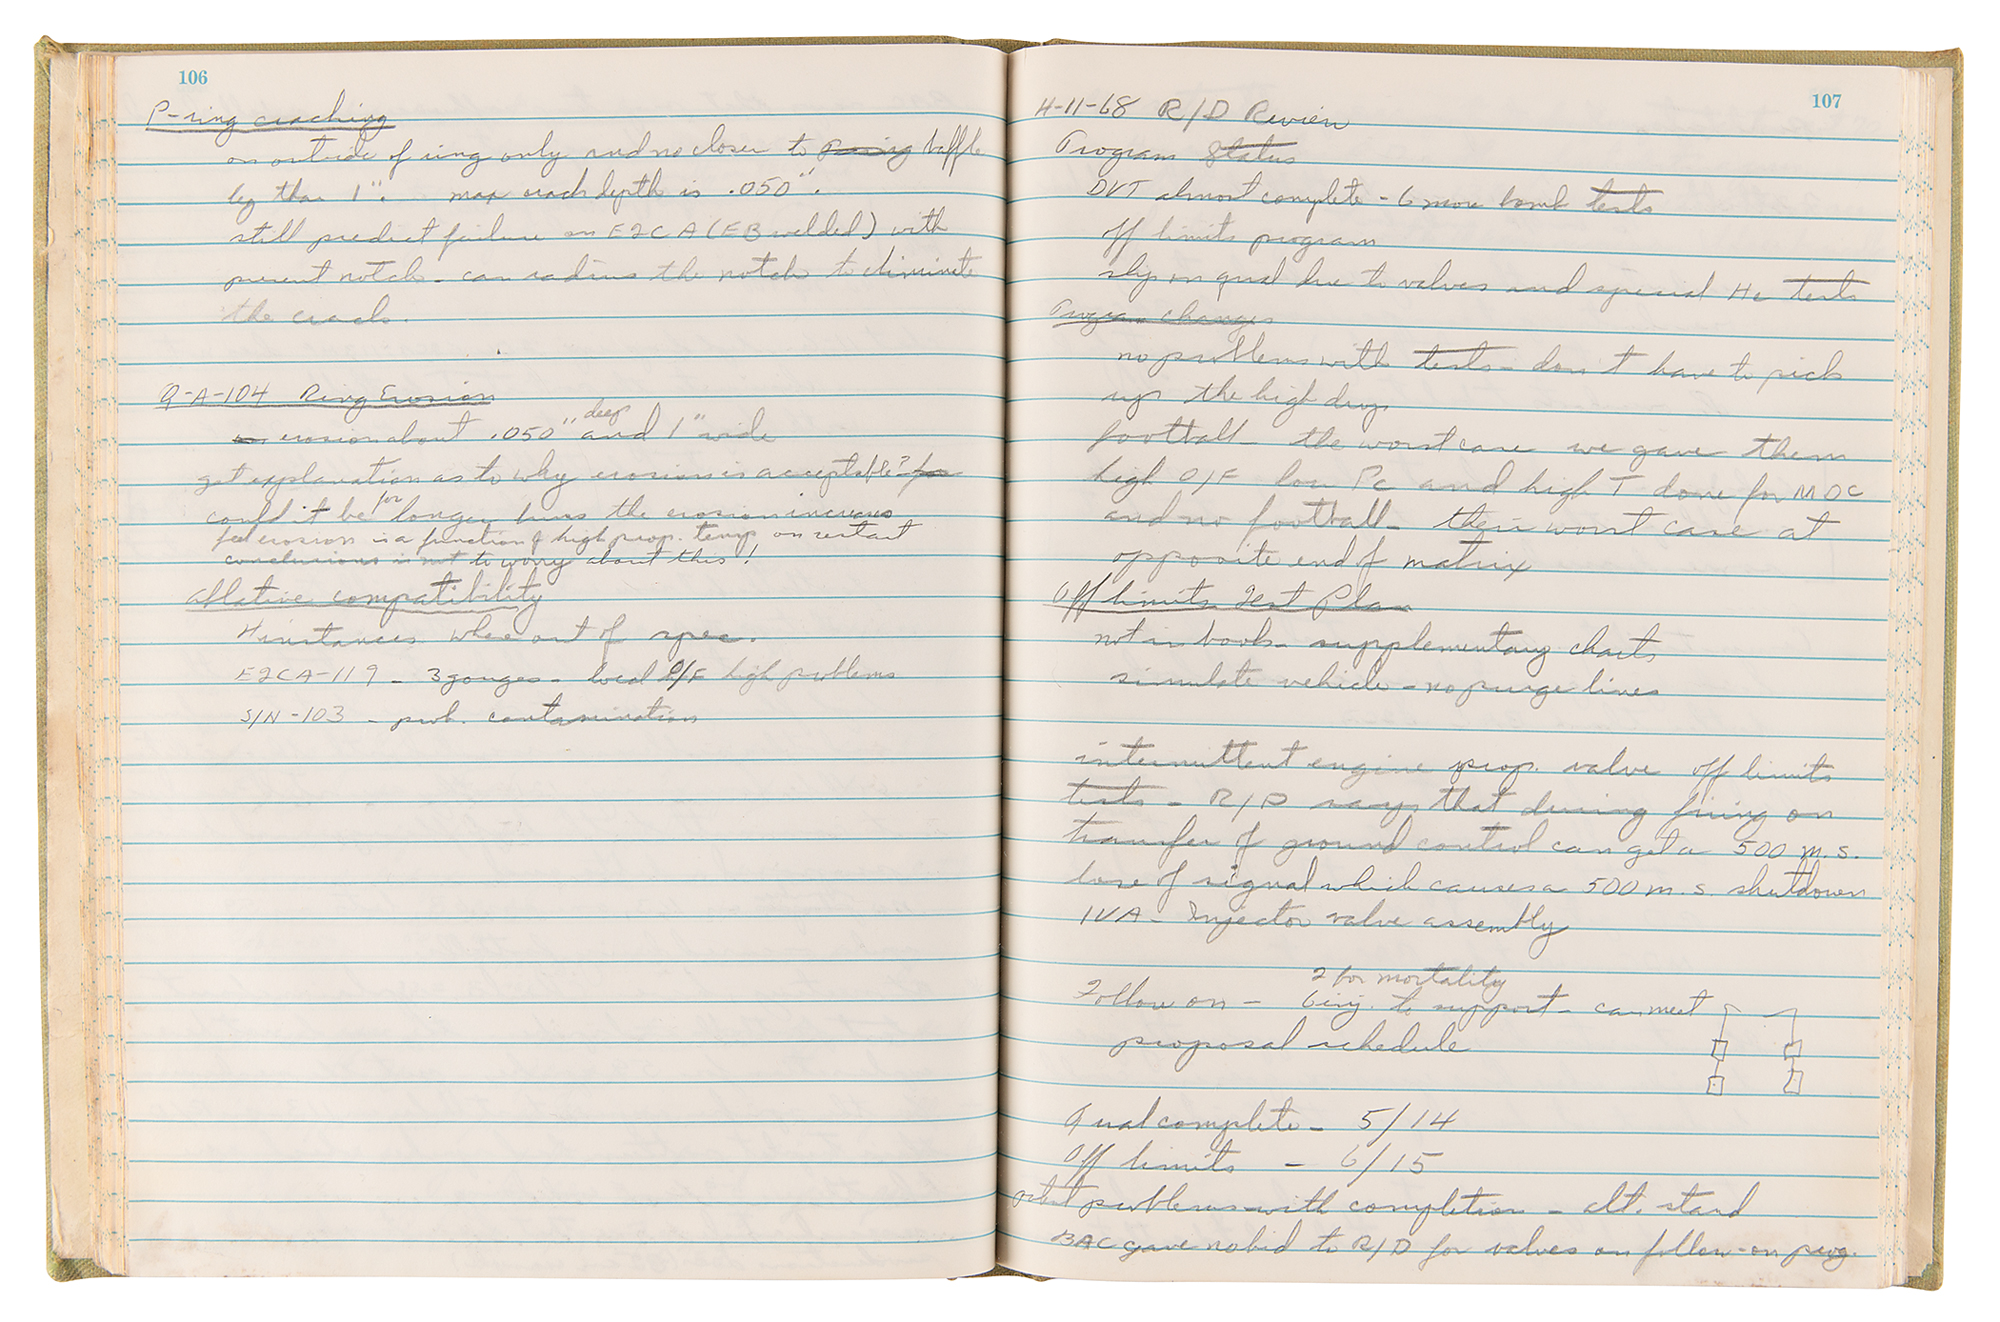 106
P-ring cracking
on outside of ring only and no closer to P-ring baffle
leg than 1". max crack depth is .050".
still predict failure on E2CA (EB welded) with
present notch - can radius the notch to eliminate
the crack.
Q-A-104 Ring Erosion
erosion about .050" deep and 1" wide
get explanation as to why erosion is acceptable? for
could it be for longer burns the erosion increases
feel erosion is a function of high prop. temp on restart
conclusions is not to worry about this!
ablative compatibility
4 instances where out of spec.
E2CA-119 - 3 gouges - local O/F high problems
S/N-103 - prob. contamination
107
4-11-68 R/D Review
Program Status
DVT almost complete - 6 more bomb tests
off limits program
slip on qual due to valves and special He tests
Program changes
no problems with tests - don't have to pick
up the high deg.
football - the worst case we gave them
high O/F low Pc and high T done for MDC
and no football - their worst case at
opposite end of matrix
Off limits Test Plan
not in book - supplementary charts
simulate vehicle - no purge lines
intermittent engine prop. valve off limits
tests - R/D says that during firing on
transfer of ground control can get a 500 m.s.
loss of signal which causes a 500 m.s. shutdown
IVA - Injector valve assembly
2 for mortality
Follow on - 6 inj. to support - can meet
proposal schedule
Qual complete - 5/14
Off limits - 6/15
potent problems with completion - alt. stand
BAC gave no bid to R/D for valves on follow-on prog.